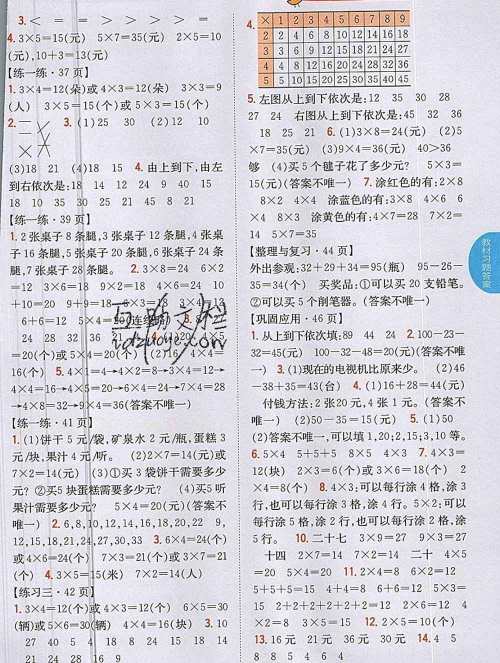 3. ＜ ＝ ＝ ＞ ＞ ＞ ＞ ＝
4. 3×5=15(元) 5×7=35(元) 2×5=10
(元),10+3=13(元)
【练一练·37页】
1. 3×4=12(朵)或4×3=12(朵) 3×3=9
(人) 3×5=15(个)或5×3=15(个)
2. 3. (1)25 30 (2)12 10
(3)18 21 (4)18 15 4. 由上到下,由左
到右依次是:18 14 12 24 9 40 15
18 10 35 30 25 21 45 8 21
【练一练·39页】
1. 2张桌子8条腿,3张桌子12条腿,4张桌
子16条腿,5张桌子20条腿,6张桌子24条
腿,7张桌子28条腿。 2. 3×8=24 6×2
=12 3×6=18 9×2=18 4×6=24 10
+10=20 9+9=18
6+6=12 5×4=20
24 28 32 36 21
=20(个)或5×4=20(个) (2)16 4×4=
16(个) 5. 4×1=4→4×2=8→3×4=12→
4×4=16→4×5=20→6×4=24→7×4=28
→4×8=32→9×4=36(答案不唯一)
【练一练·41页】
1. (1)饼干5元/袋,矿泉水2元/瓶,蛋糕3
元/块,果汁4元/听。 (2)2×7=14(元)或
7×2=14(元) (3)①买3袋饼干需要多少
元? ②买5块蛋糕需要多少元? (4)买5听
果汁需要多少元? 5×4=20(元)(答案不
唯一) 2. 6,8,10,12,14,16,18,20,22 9,
12,15,18,21,24,27,30,33 3. 6×4=24(个)
或4×6=24(个) 7×3=21(个)或3×7=21
(个) 4. 3×5=15(米) 7×2=14(人)
【练习三·42页】
1. 3×4=12(个)或4×3=12(个) 6×5=30
(辆)或5×6=30(辆) 4×4=16(块) 3. 10
27 40 5 4 18 8 24 15 18 14
21 24 28 16 9
4. × 1 2 3 4 5 6 7 8 9
2 2 4 6 8 10 12 14 16 18
3 3 6 9 12 15 18 21 24 27
4 4 8 12 16 20 24 28 32 36
5 5 10 15 20 25 30 35 40 45
5. 左图从上到下依次是:12 35 30 28
27 24 右图从上到下依次是:45 32 36
18 25 21 6. (1)3×8=24(元) (2)5
×7=35(元) (3)9×4=36(元) 40>36
够 (4)买5个毽子花了多少元? 5×3=
15(元)(答案不唯一) 7. 涂红色的有:2×8
8×2 4×4 涂蓝色的有:3×8 4×6 6
×4 8×3 涂黄色的有:4×7=28 7×2=
14 5×7=35
【整理与复习·44页】
外出参观:32+29+34=95(瓶) 95-26-
35=34(个) 买奖品:①可以买20支铅笔。
②可以买5个削笔器。(答案不唯一)
【巩固应用·46页】
1. 从上到下依次填:89 44 24 2. 100-23-
32=45(元) 100-32-48=20(元)(答案不唯
一) 3. (1)现在的电视机比原来少。 (2)46
-38+35=43(台) 4. (1)16+28=44(元)
付钱方法:2张20元,4张1元。(答案不
唯一) (2)50-35=15(元) 5. (1)50
(2)答案不唯一,可以填1,20;2,15;3,10等。
6. 5×4 5+5+5 8×5 4×3 7. 4×3=
12(块) 2×3=6(个)或3×6=18(个) 2
×4=8(个) 8. 4×3:可以每行涂4格,涂3
行,也可以每行涂3格,涂4行。5×2:可以
每行涂5格,涂2行,也可以每行涂2格,涂
5行。 10. 二十七 3×9=27 9×3=27
十四 2×7=14 7×2=14 二十 4×5
=20 5×4=20 11. 2×4=8 6×2=12
5+5+5=15 4+4=8 6+6=12 5×3=
15 2+2+2+2+2+2=12 2×6=12 4
×2=8 3×5=15 12. 2×5=10(个)
13. 16元 21元 36元 30元 14. 4 5
8 8 5 4 6 4
教材习题答案